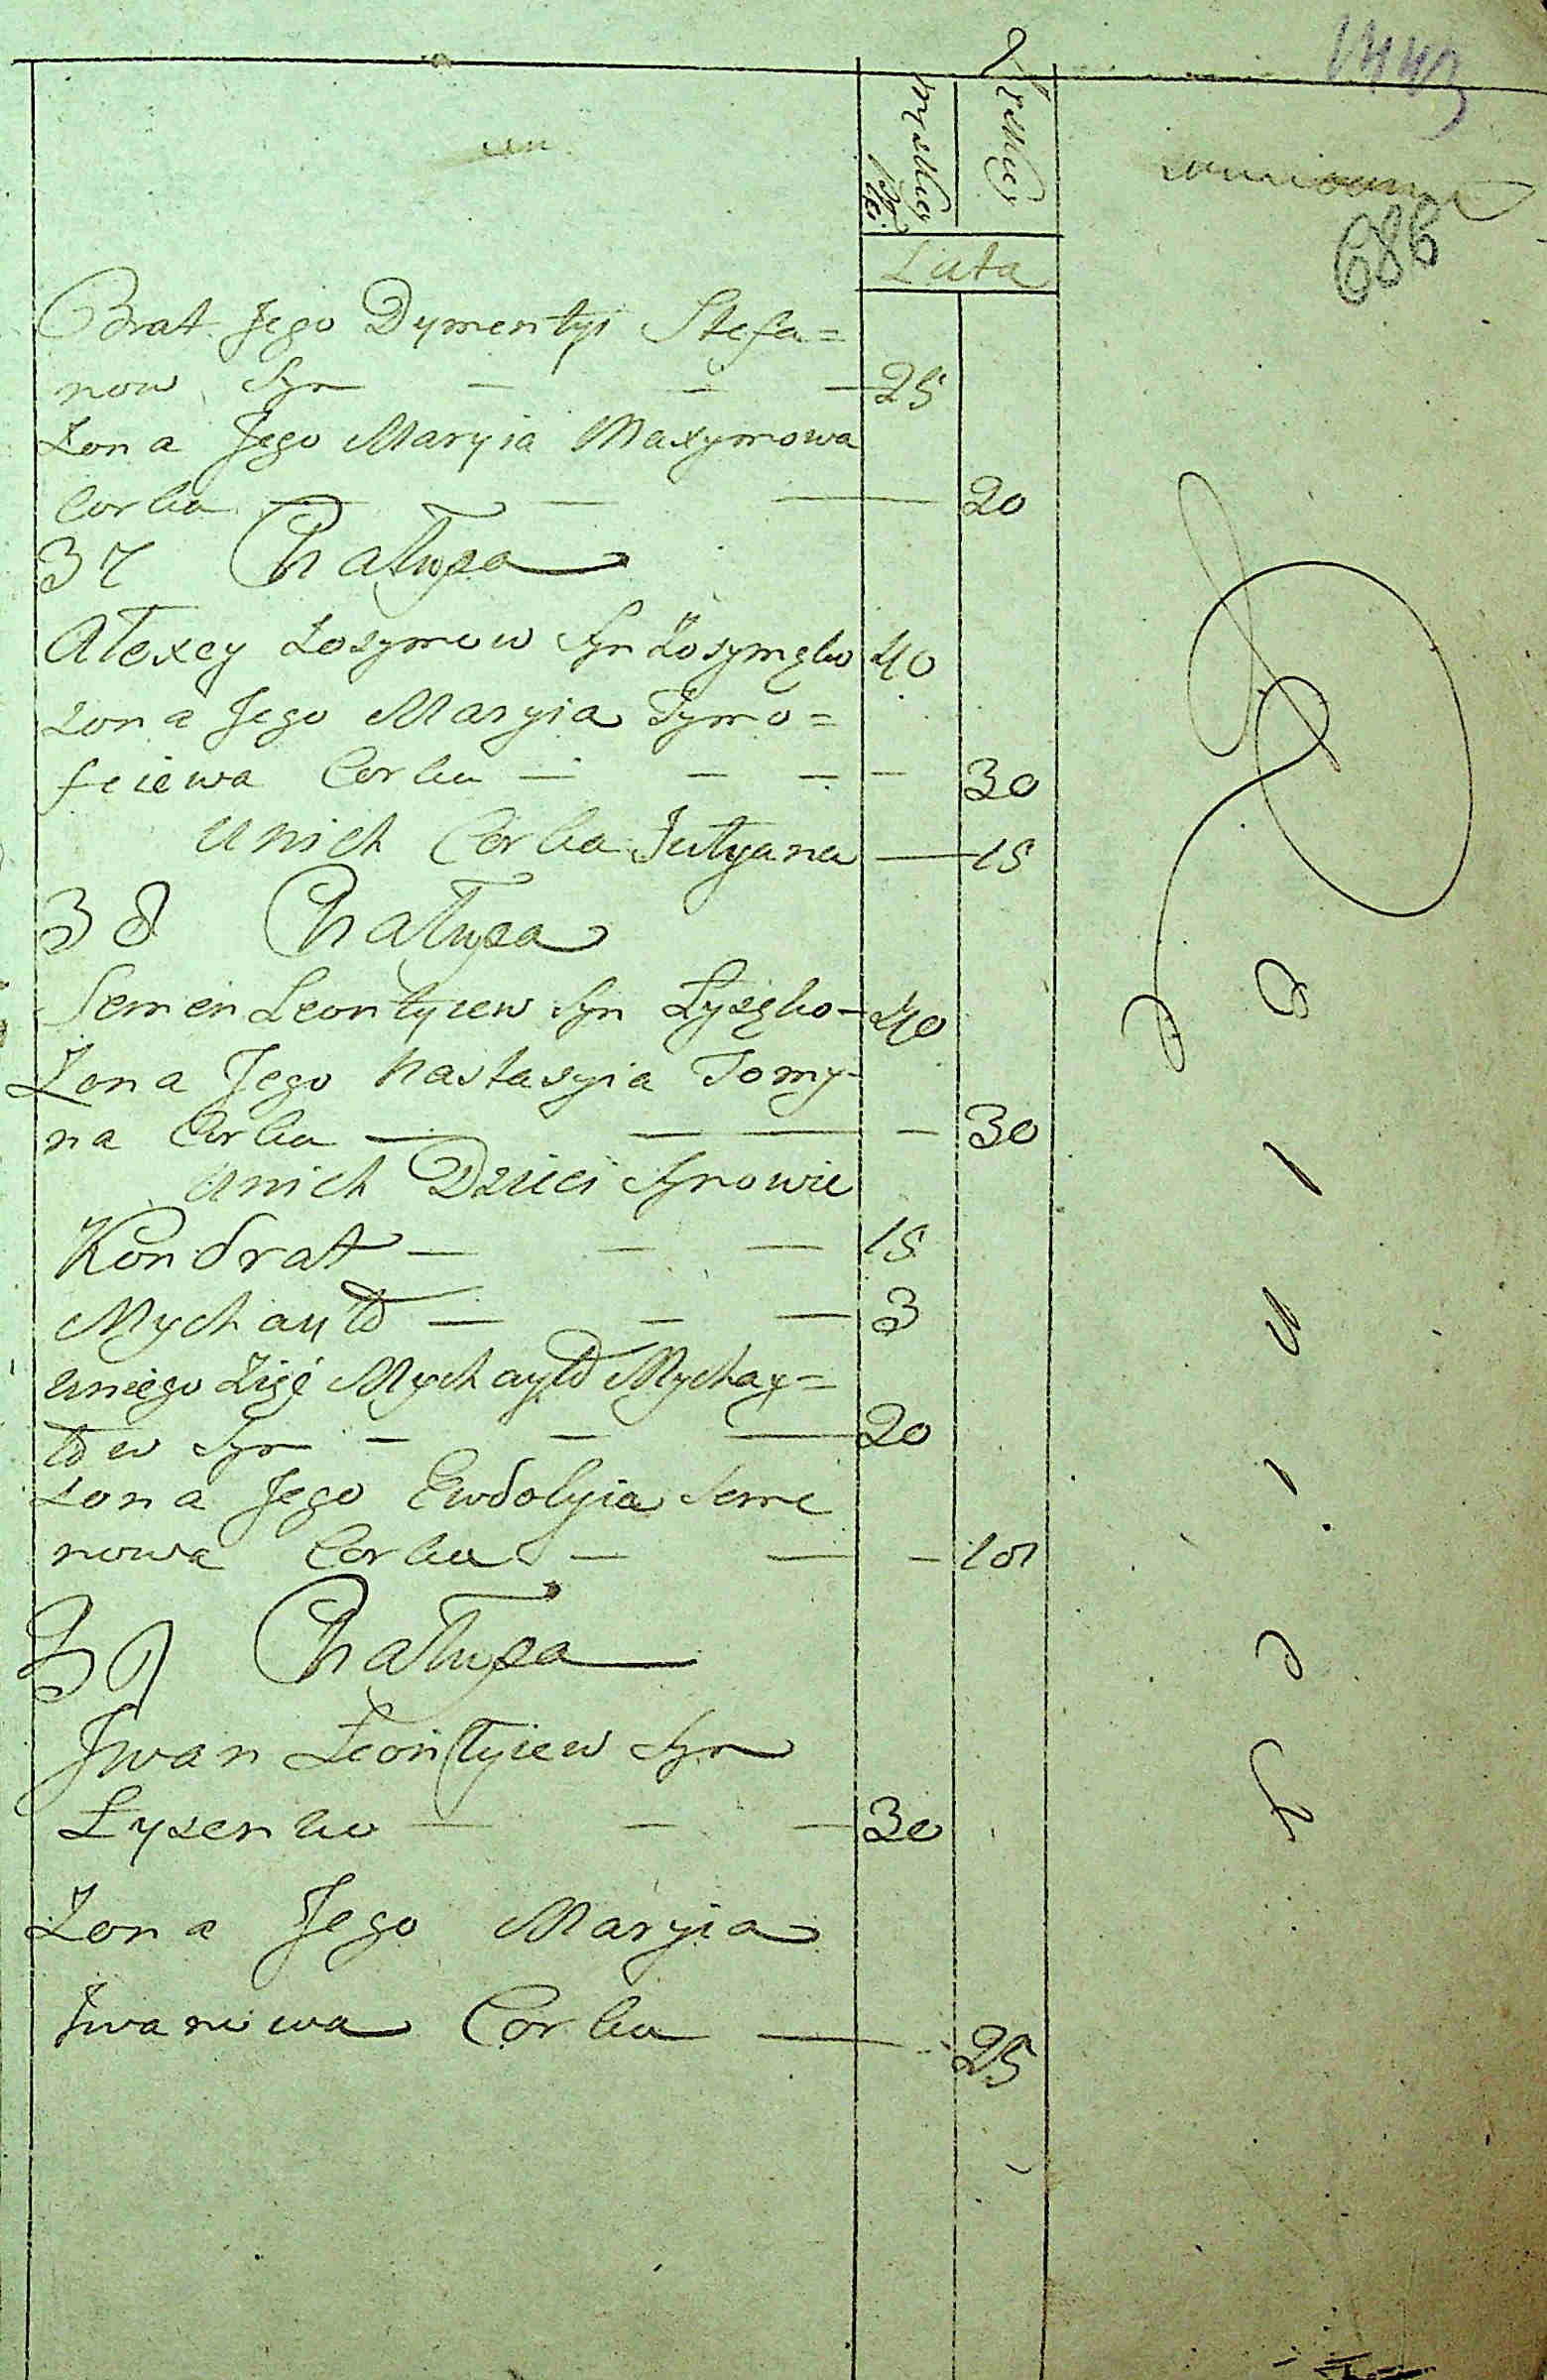 686
Lata
Brat Jego Dymentyi Stefa=
now Syn — — — 25
Zona Jego Maryia Maxymowa
Corka — — — 20
37 Chałupa
Alexey Zosymow Syn Zosymęko 40
Zona Jego Maryia Tymo=
feiewa Corka — — — — 30
unich Corka Julyana — 15
38 Chałupa
Semen Leontyiew Syn Łysęko — 40
Zona Jego Nastasyia Tomy-
na Corka — — — — 30
unich Dzieci Synowie
Kondrat — — — 15
Mychayło — — — 3
uniego Zięć Mychayło Mychay=
łow Syn — — — 20
Zona Jego Ewdokyia Seme
nowa Corka — — —
39 Chałupa
Jwan Leontyiew Syn
Łysenko — — — 30
Zona Jego Maryia
Jwaniwa Corka — 25